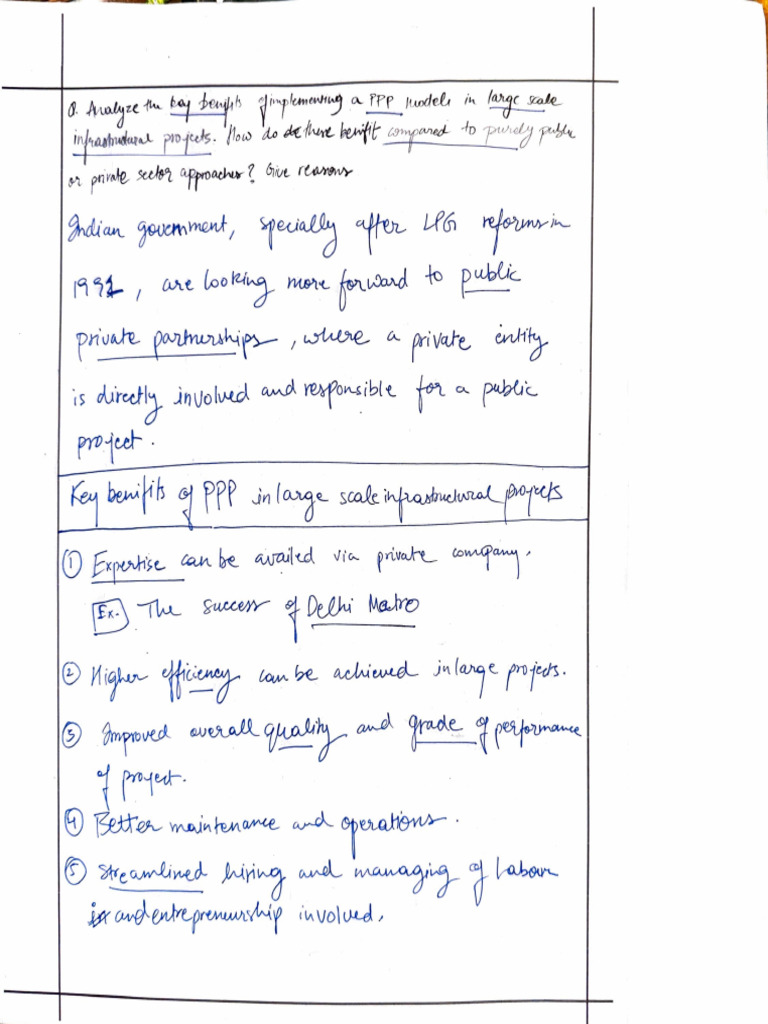 Q. Analyze the key benifits of implementing a PPP models in large scale
infrastructural projects. How do these benifit compared to purely public
or private sector approaches? Give reasons
Indian government, specially after LPG reforms in
1991, are looking more forward to public
private partnerships, where a private entity
is directly involved and responsible for a public
project.
Key benifits of PPP in large scale infrastructural projects
① Expertise can be availed via private company.
Ex. The success of Delhi Metro
② Higher efficiency can be achieved in large projects.
③ Improved overall quality and grade of performance
of project.
④ Better maintenance and operations.
⑤ Streamlined hiring and managing of labour
and entrepreneurship involved.